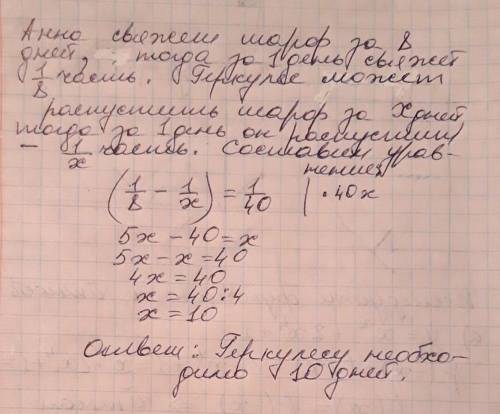 Анна свяжет шарф за 8
дней, тогда за 1 день свяжет
1/8 часть. Геркулес может
распустить шарф за x дней
тогда за 1 день он распустит
- 1/x часть. Составим урав-
нение:
(1/8 - 1/x) = 1/40 | · 40x
5x - 40 = x
5x - x = 40
4x = 40
x = 40 : 4
x = 10
Ответ: Геркулесу необхо-
димо 10 дней.